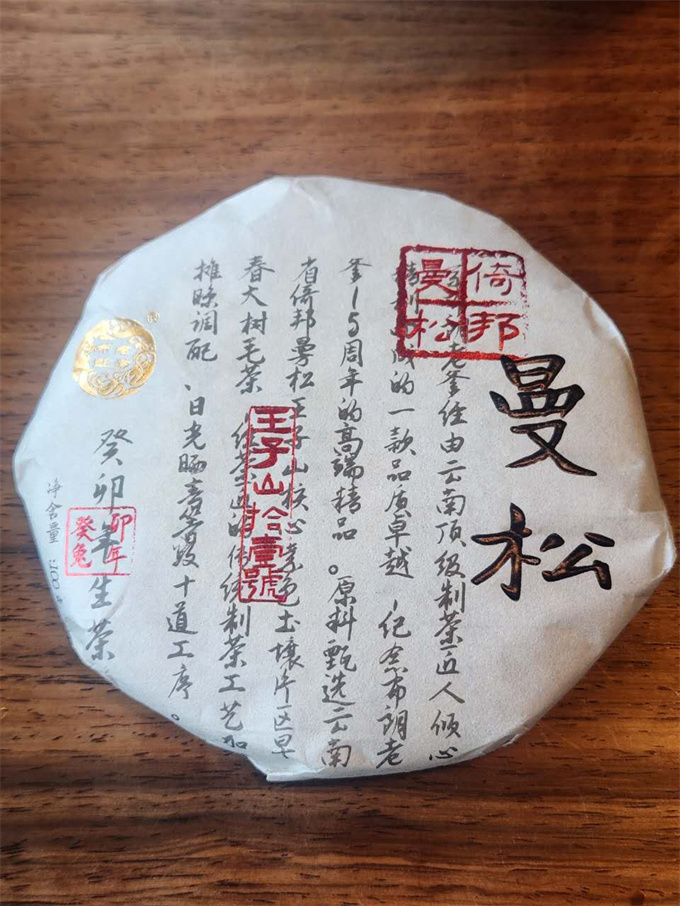 倚邦
曼松
曼松
老釜经由云南顶级制茶匠人倾心
精制 成的一款品质卓越、纪念布朗老
釜15周年的高端精品。原料甄选云南
省倚邦曼松王子山核心紫色土壤片区早
春大树毛茶 经茶匠 传统制茶工艺和
摊晾调配、日光晒青等数十道工序。
王子山拾壹號
癸卯年生茶
卯年
癸兔
净含量